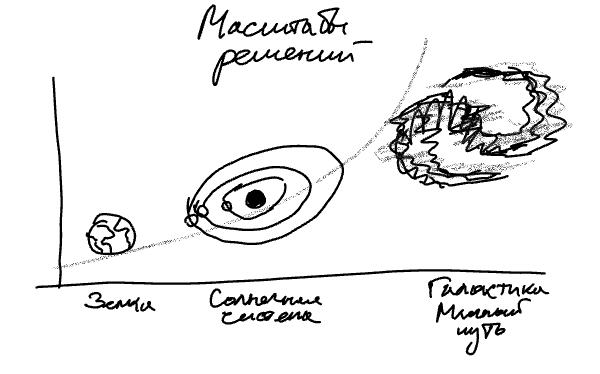 Масштабы
решений
Земля
Солнечная
система
Галактика
Млечный
путь